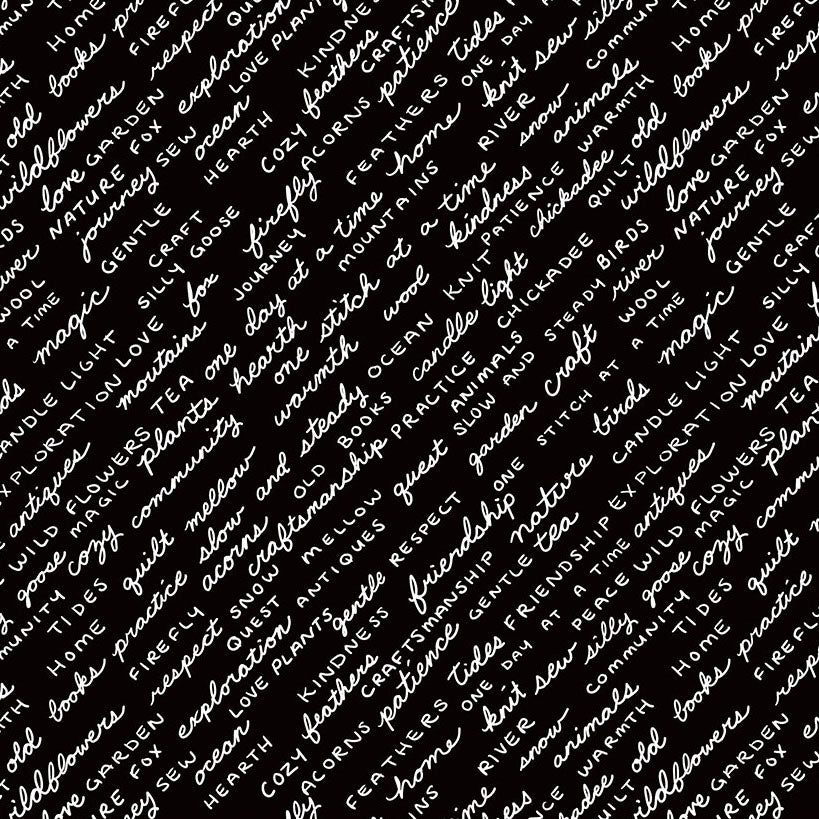 HOME
books
FIREFLY
respect
exploration
LOVE PLANTS
KINDNESS
feathers
CRAFTSM
patience
tides
ONE DAY
knit sew silly
COMMUN
HOME
books
FIREFLY
old
wildflowers
love GARDEN
NATURE FOX
journey SEW
ocean
HEARTH
COZY
ACORNS
FEATHERS
home
RIVER
snow
animals
WARMTH
QUILT old
wildflowers
love GARDEN
NATURE FOX
journey SEW
GENTLE
CRAFT
SILLY GOOSE
firefly
JOURNEY
day at a time
MOUNTAINS
one stitch at a time
kindness
KNIT PATIENCE
chickadee
BIRDS
river
WOOL
A TIME
magic
GENTLE
WOOL
A TIME
magic
CANDLE LIGHT
EXPLORATION LOVE
moutains
fox
TEA one
hearth
warmth
wool
OCEAN
candle light
CHICKADEE
SLOW AND STEADY
ONE STITCH AT A TIME
birds
CANDLE LIGHT
EXPLORATION LOVE
antiques
WILD FLOWERS
MAGIC plants
goose
cozy community
quilt mellow
slow and steady
OLD BOOKS
PRACTICE
ANIMALS
garden craft
acorns
craftsmanship
MELLOW
quest
ANTIQUES
gentle RESPECT
friendship
ONE
nature
tea
FRIENDSHIP
antiques
PEACE WILD FLOWERS
goose MAGIC
cozy
TIDES
HOME
books practice
FIREFLY
respect SNOW
QUEST
exploration
LOVE PLANTS
KINDNESS
feathers
CRAFTSMANSHIP
patience
GENTLE
tides
ONE DAY AT A TIME
knit sew silly
COMMUNITY
TIDES
HOME
books practice
quilt
FIREFLY
old
wildflowers
love GARDEN
FOX
SEW
ocean
HEARTH
COZY
ACORNS
FEATHERS
home
RIVER
snow
animals
WARMTH
old
wildflowers
love GARDEN
NATURE FOX